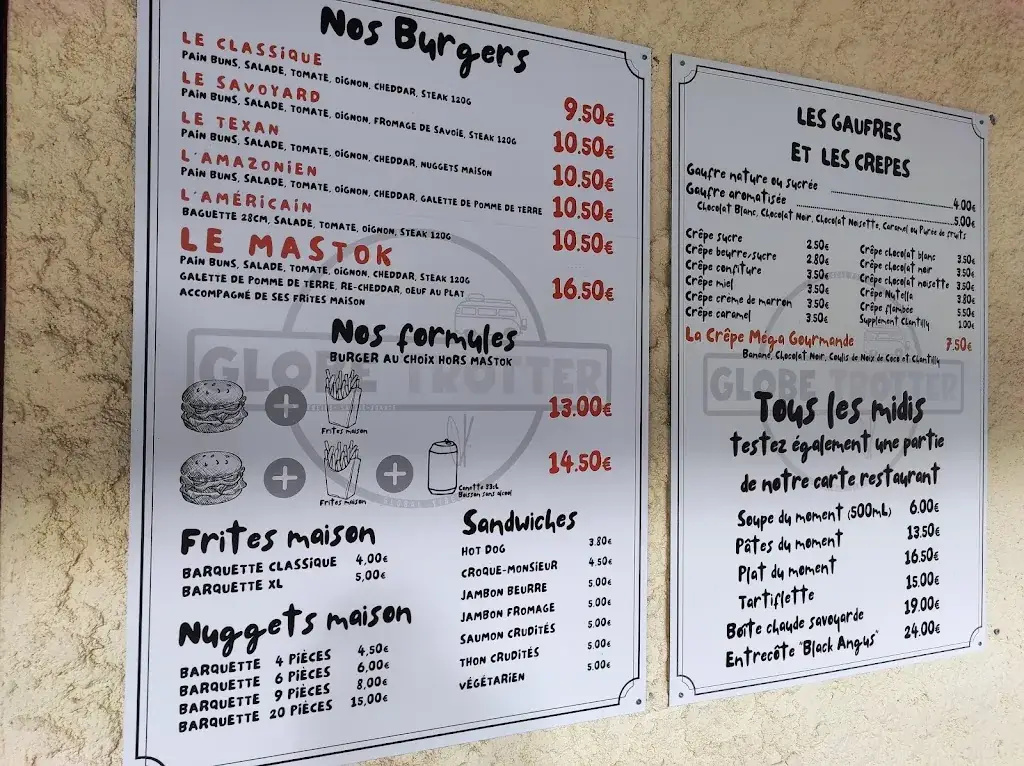 Nos Burgers
LE CLASSIQUE
PAIN BUNS, SALADE, TOMATE, OIGNON, CHEDDAR, STEAK 120G
9.50€
LE SAVOYARD
PAIN BUNS, SALADE, TOMATE, OIGNON, FROMAGE DE SAVOIE, STEAK 120G
10.50€
LE TEXAN
PAIN BUNS, SALADE, TOMATE, OIGNON, CHEDDAR, NUGGETS MAISON
10.50€
L'AMAZONIEN
PAIN BUNS, SALADE, TOMATE, OIGNON, CHEDDAR, GALETTE DE POMME DE TERRE
10.50€
L'AMÉRICAIN
BAGUETTE 28CM, SALADE, TOMATE, OIGNON, STEAK 120G
10.50€
LE MASTOK
PAIN BUNS, SALADE, TOMATE, OIGNON, CHEDDAR, STEAK 120G
GALETTE DE POMME DE TERRE, RE-CHEDDAR, OEUF AU PLAT
ACCOMPAGNÉ DE SES FRITES MAISON
16.50€
Nos formules
BURGER AU CHOIX HORS MASTOK
GLOBE TROTTER
+
Frites maison
13.00€
+
Frites maison
+
Canette 33cL
Boisson sans alcool
14.50€
Frites maison
BARQUETTE CLASSIQUE 4,00€
BARQUETTE XL 5,00€
Nuggets maison
BARQUETTE 4 PIÈCES 4,50€
BARQUETTE 6 PIÈCES 6,00€
BARQUETTE 9 PIÈCES 8,00€
BARQUETTE 20 PIÈCES 15,00€
Sandwiches
HOT DOG 3.80€
CROQUE-MONSIEUR 4.50€
JAMBON BEURRE 5.00€
JAMBON FROMAGE 5.00€
SAUMON CRUDITÉS 5.00€
THON CRUDITÉS 5.00€
VÉGÉTARIEN 5.00€
LES GAUFRES
ET LES CREPES
Gaufre nature ou sucrée 4.00€
Gaufre aromatisée 5.00€
Chocolat Blanc, Chocolat Noir, Chocolat Noisette, Caramel ou Purée de fruits
Crêpe sucre 2.50€
Crêpe beurre/sucre 2.80€
Crêpe confiture 3.50€
Crêpe miel 3.50€
Crêpe crème de marron 3.50€
Crêpe caramel 3.50€
Crêpe chocolat blanc 3.50€
Crêpe chocolat noir 3.50€
Crêpe chocolat noisette 3.50€
Crêpe Nutella 3.80€
Crêpe flambée 5.50€
Supplément Chantilly 1.00€
La Crêpe Méga Gourmande 7.50€
Banane, Chocolat Noir, Coulis de Noix de Coco et Chantilly
GLOBE TROTTER
Tous les midis
testez également une partie
de notre carte restaurant
Soupe du moment (500mL) 6.00€
Pâtes du moment 13.50€
Plat du moment 16.50€
Tartiflette 15.00€
Boîte chaude savoyarde 19.00€
Entrecôte "Black Angus" 24.00€